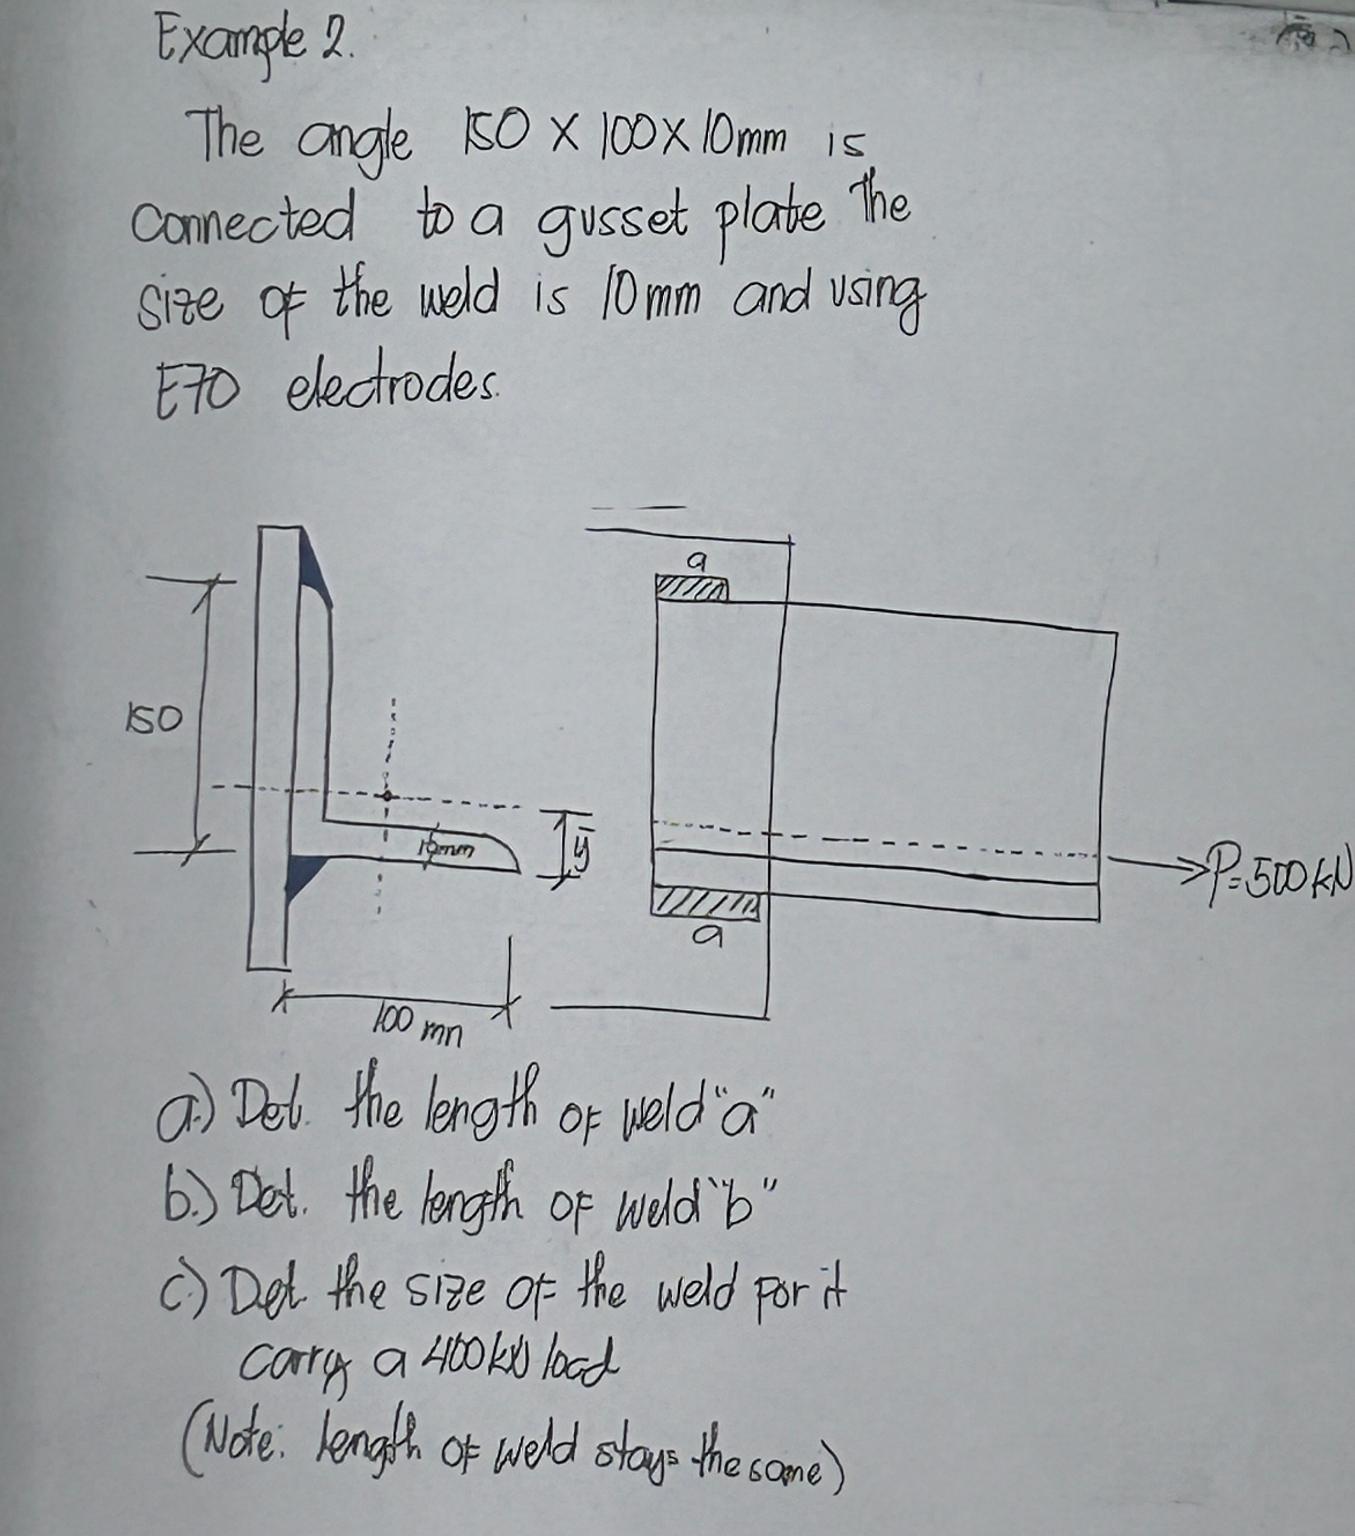 Example 2.
The angle 150 X 100 X 10mm is
connected to a gusset plate The
size of the weld is 10mm and using
E70 electrodes.
a
150
10mm
ȳ
P=500kN
a
100 mn
a.) Det. the length of weld "a"
b.) Det. the length of weld "b"
c.) Det the size of the weld for it
carry a 400kN load
(Note: length of weld stays the same)